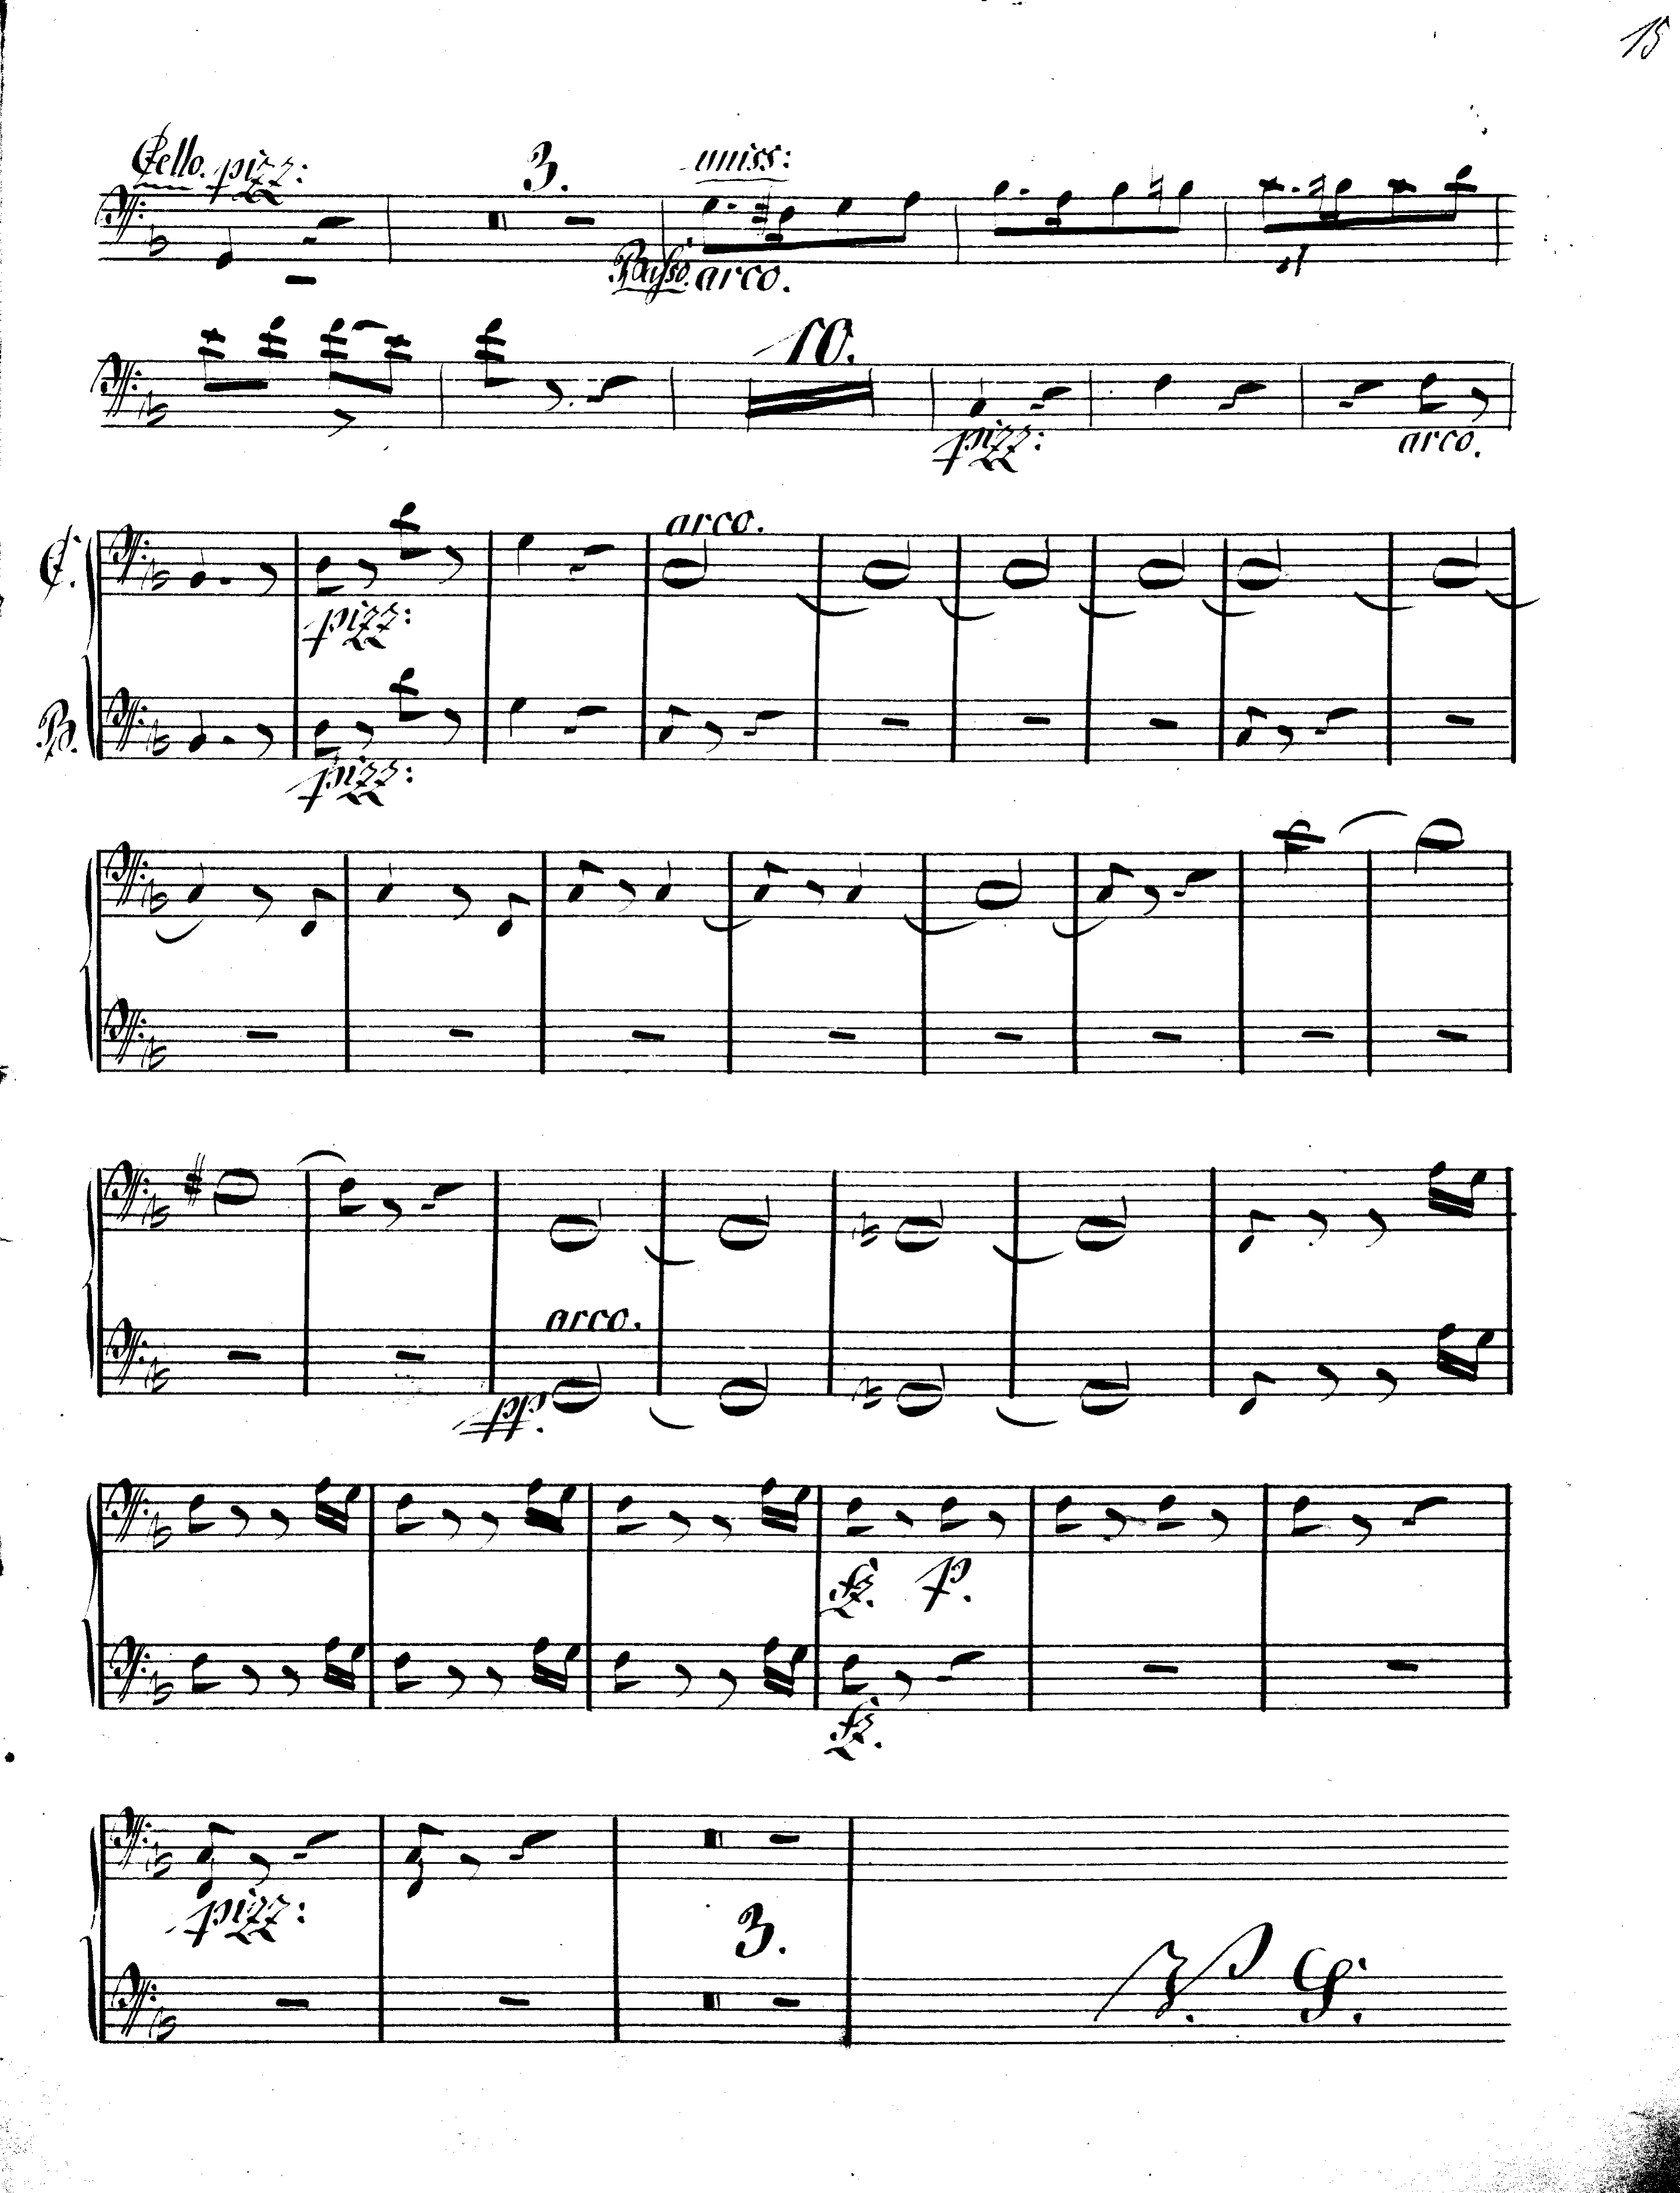 15
Cello. pizz: 3. uniss:
Basso. arco.
10.
pizz: arco.
C. arco.
pizz:
B.
pizz:
arco.
pp.
fz. p.
fz.
pizz:
3.
V. S: